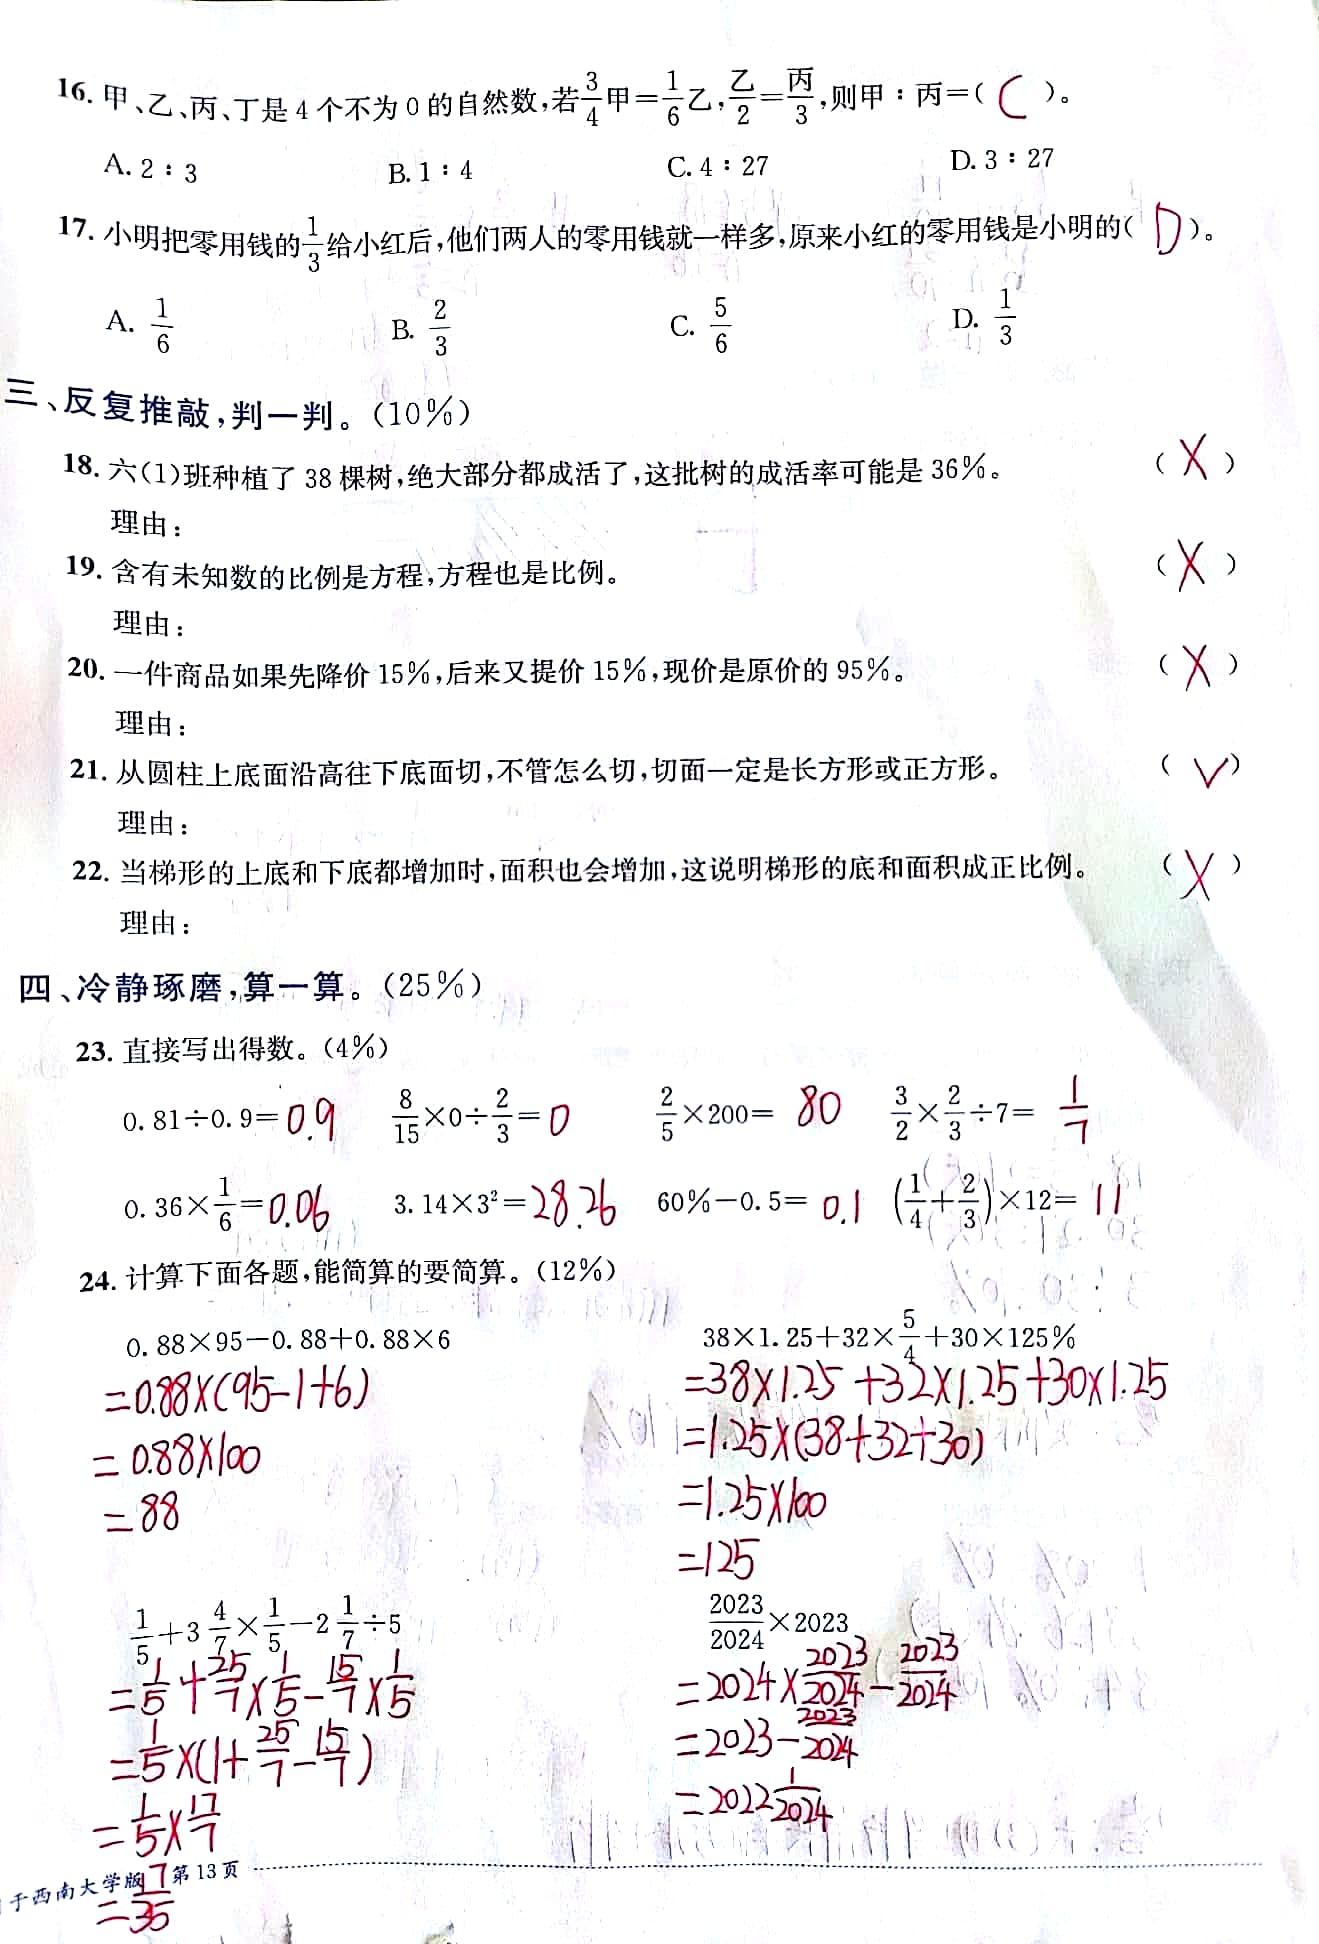 16. 甲、乙、丙、丁是 4 个不为 0 的自然数,若3/4甲=1/6乙,乙/2=丙/3,则甲∶丙=( C )。
A. 2∶3 B. 1∶4 C. 4∶27 D. 3∶27
17. 小明把零用钱的1/3给小红后,他们两人的零用钱就一样多,原来小红的零用钱是小明的( D )。
A. 1/6 B. 2/3 C. 5/6 D. 1/3
三、反复推敲,判一判。(10%)
18. 六(1)班种植了 38 棵树,绝大部分都成活了,这批树的成活率可能是 36%。 ( X )
理由:
19. 含有未知数的比例是方程,方程也是比例。 ( X )
理由:
20. 一件商品如果先降价 15%,后来又提价 15%,现价是原价的 95%。 ( X )
理由:
21. 从圆柱上底面沿高往下底面切,不管怎么切,切面一定是长方形或正方形。 ( √ )
理由:
22. 当梯形的上底和下底都增加时,面积也会增加,这说明梯形的底和面积成正比例。 ( X )
理由:
四、冷静琢磨,算一算。(25%)
23. 直接写出得数。(4%)
0.81÷0.9=0.9 8/15×0÷2/3=0 2/5×200=80 3/2×2/3÷7=1/7
0.36×1/6=0.06 3.14×3²=28.26 60%-0.5=0.1 (1/4+2/3)×12=11
24. 计算下面各题,能简算的要简算。(12%)
0.88×95-0.88+0.88×6
=0.88×(95-1+6)
=0.88×100
=88
38×1.25+32×5/4+30×125%
=38×1.25+32×1.25+30×1.25
=1.25×(38+32+30)
=1.25×100
=125
1/5+3 4/7×1/5-2 1/7÷5
=1/5+25/7×1/5-15/7×1/5
=1/5×(1+25/7-15/7)
=1/5×17/7
=17/35
2023/2024×2023
=2024×2023/2024-2023/2024
=2023-2023/2024
=2022 1/2024
于西南大学版 第13页